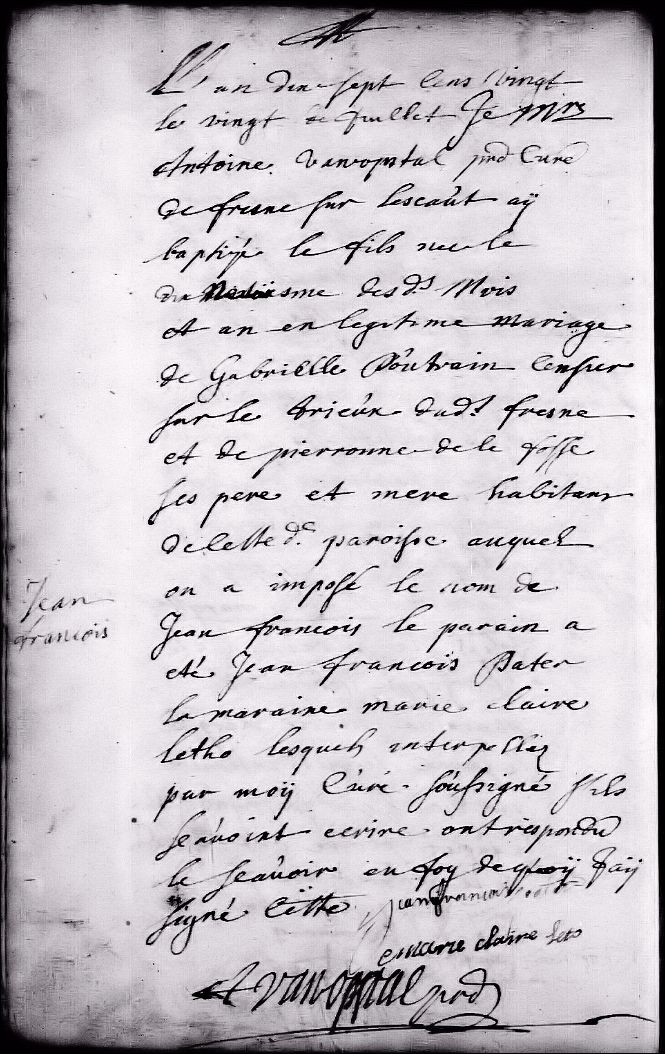 L'an dix sept cens vingt
le vingt de juillet Je
Antoine vanopstal pnd Curé
de fresne sur lescaut aÿ
baptizé le fils né le
mesme des ds Mois
et an en legitime mariage
de Gabrielle Poutrain Censier
sur le trieux dudt fresne
et de pierronne de le fosse
ses pere et mere habitans
de cette de paroisse auquel
on a imposé le nom de
Jean francois
Jean francois le parain a
eté Jean francois Pater
la maraine marie claire
letho lesquels interpellez
par moÿ Curé soussigné s'ils
scavoint ecrire ont respondu
le scavoir en foy de quoÿ J'aÿ
signé Cette
Jean francois
marie claire leto
A vanopstal pnd